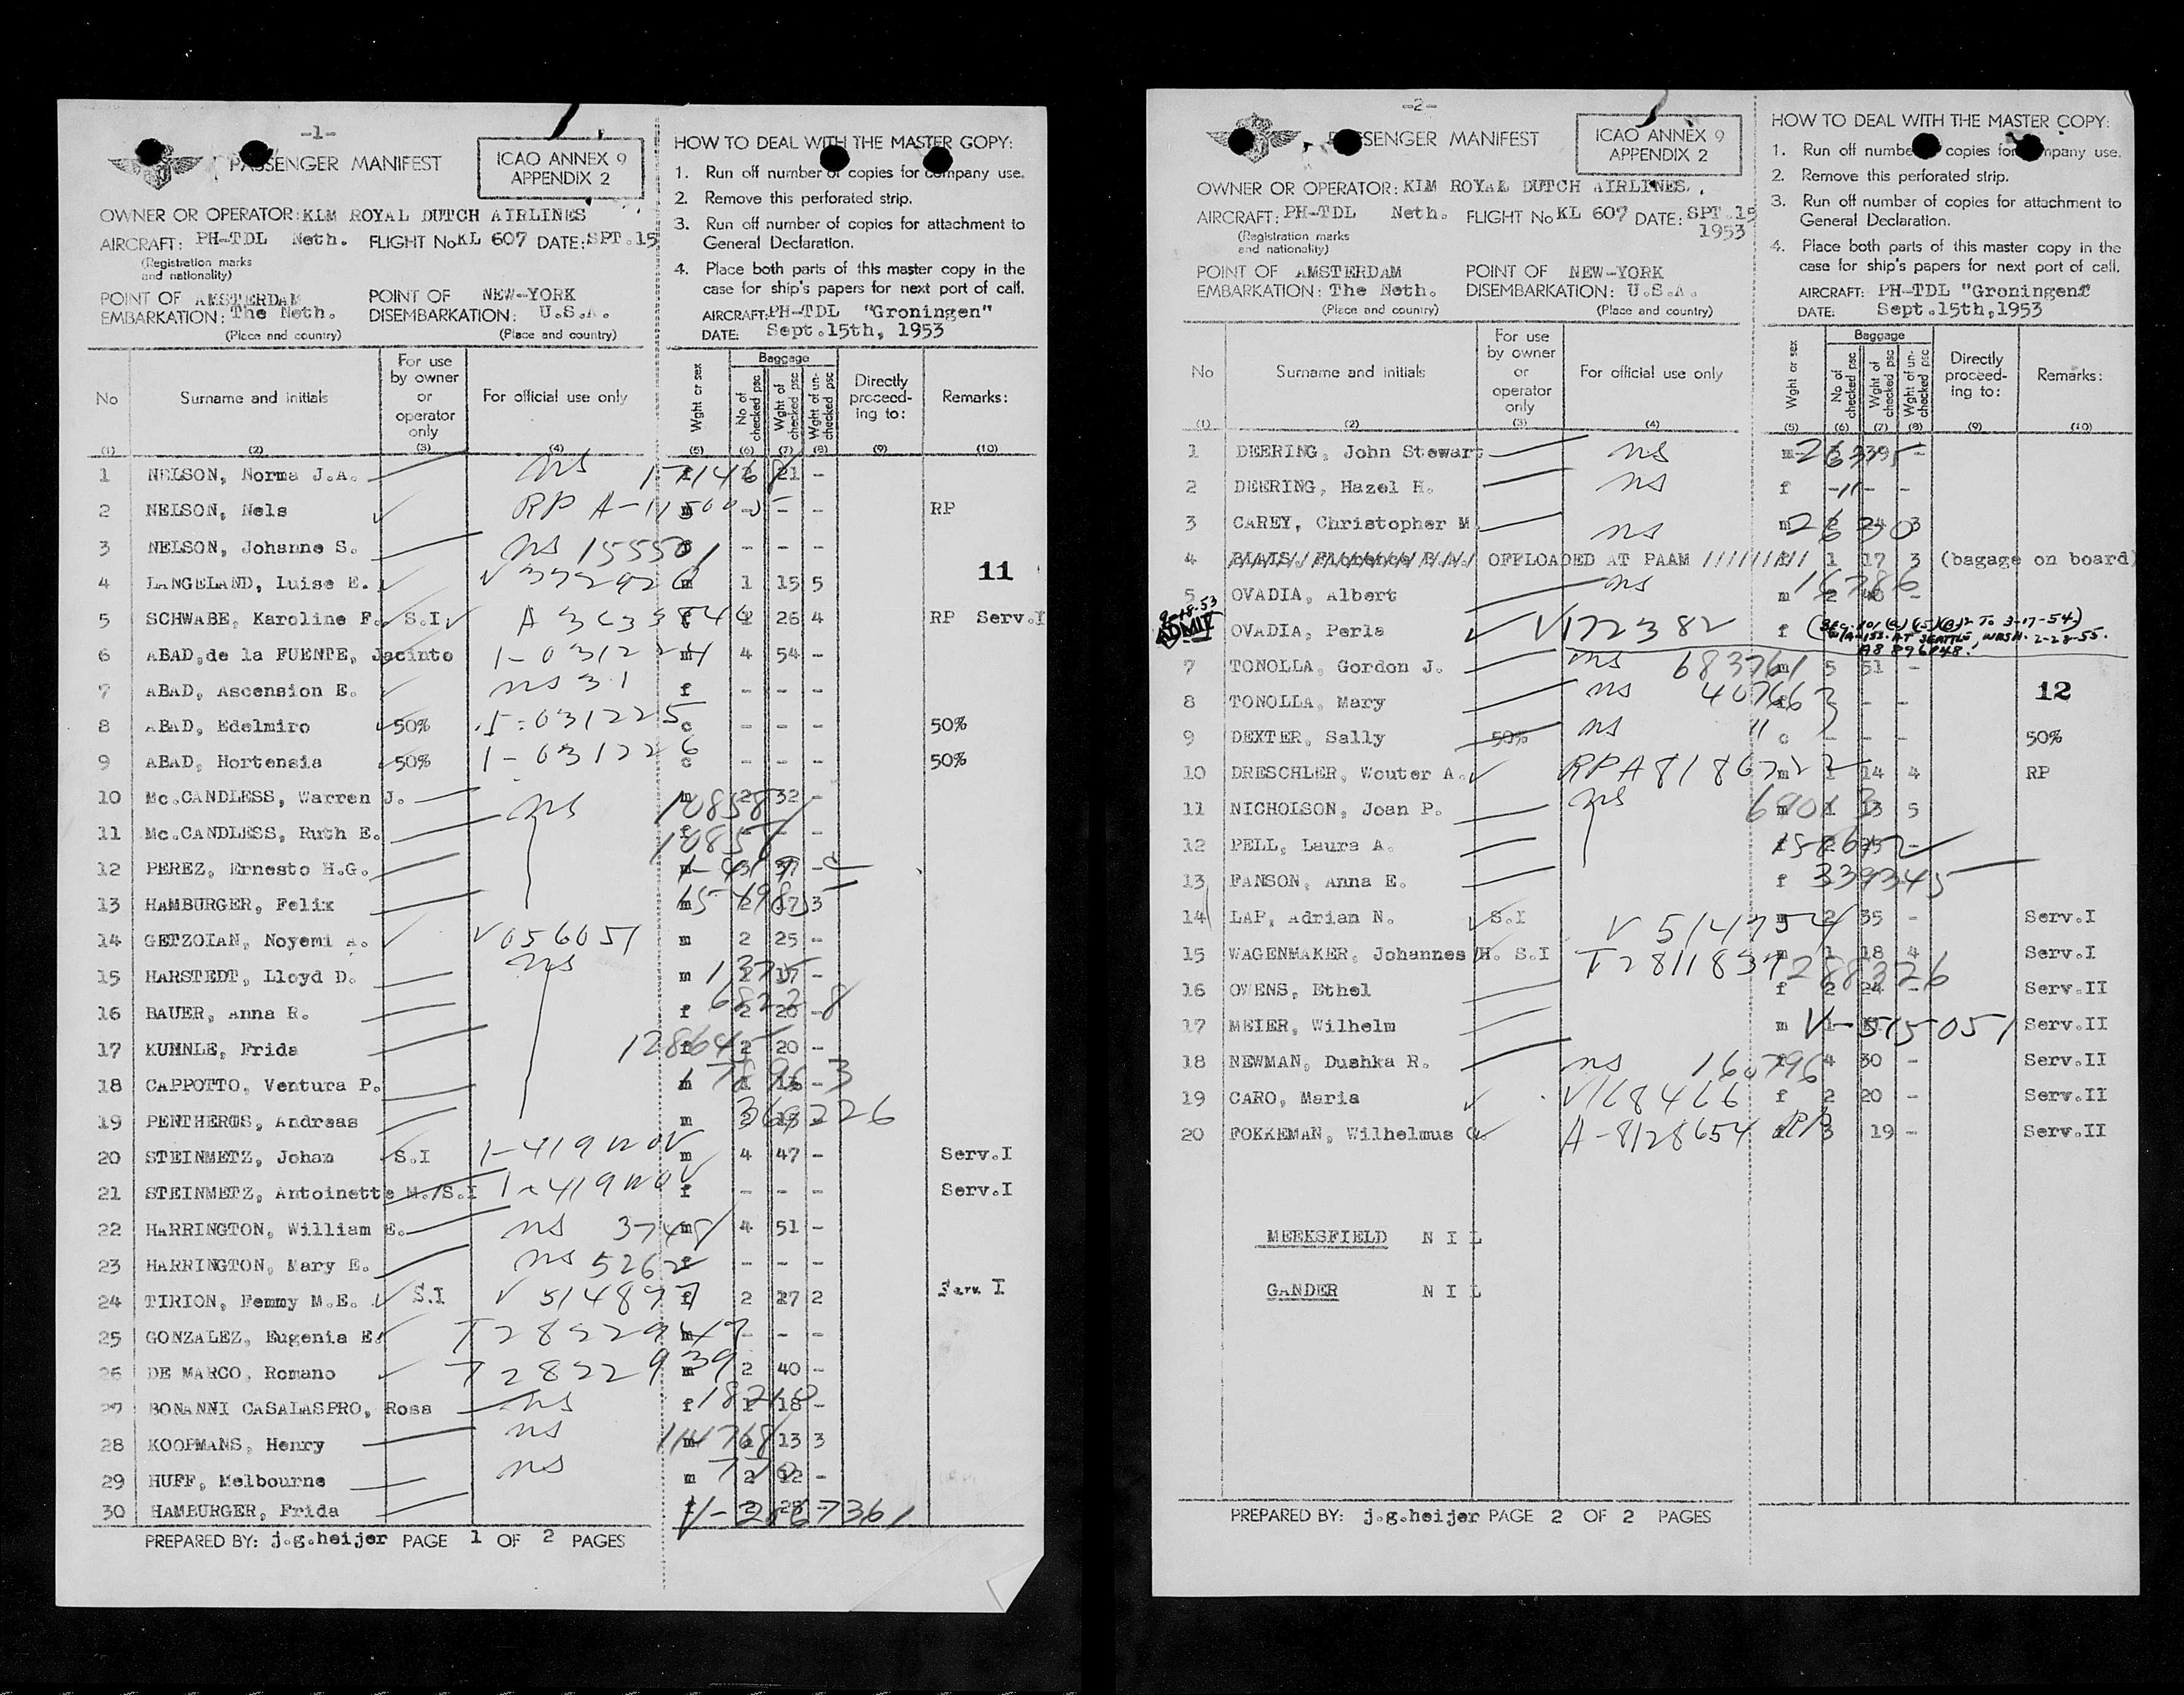 -1-
PASSENGER MANIFEST
ICAO ANNEX 9
APPENDIX 2
OWNER OR OPERATOR: KLM ROYAL DUTCH AIRLINES
AIRCRAFT: PH-TDL Neth. FLIGHT No KL 607 DATE: SPT.15
(Registration marks
and nationality)
POINT OF AMSTERDAM POINT OF NEW-YORK
EMBARKATION: The Neth. DISEMBARKATION: U.S.A.
(Place and country) (Place and country)
HOW TO DEAL WITH THE MASTER COPY:
1. Run off number of copies for company use.
2. Remove this perforated strip.
3. Run off number of copies for attachment to
General Declaration.
4. Place both parts of this master copy in the
case for ship's papers for next port of call.
AIRCRAFT: PH-TDL "Groningen"
DATE: Sept.15th, 1953
No Surname and initials For use by owner or operator only For official use only Wght or sex Baggage No of checked psc Wght of checked psc Wght of un-checked psc Directly proceed-ing to: Remarks:
(1) (2) (3) (4) (5) (6) (7) (8) (9) (10)
1 NELSON, Norma J.A. ns 21 -
2 NELSON, Nels RP m - - - RP
3 NELSON, Johanne S. ns - - -
11
4 LANGELAND, Luise E. m 1 15 5
5 SCHWABE, Karoline F. S.I f 26 4 RP Serv.I
6 ABAD,de la FUENTE, Jacinto m 4 54 -
7 ABAD, Ascension E. ns 31 f - - -
8 ABAD, Edelmiro 50% c - - - 50%
9 ABAD, Hortensia 50% 1-031226 c - - - 50%
10 Mc.CANDLESS, Warren J. ns 10858 m 2 32 -
11 Mc.CANDLESS, Ruth E. 10857 f - - -
12 PEREZ, Ernesto H.G. m 3 37 -
13 HAMBURGER, Felix m 2 17 3
14 GETZOIAN, Noyemi A. V056051 m 2 25 -
15 HARSTEDT, Lloyd D. ns m 17 -
16 BAUER, Anna R. 68228 f 2 20 -
17 KUHNLE, Frida 128645 f 2 20 -
18 CAPPOTTO, Ventura P. m 1 -
19 PENTHEROS, Andreas 369226 m
20 STEINMETZ, Johan S.I 1-419 NOV m 4 47 - Serv.I
21 STEINMETZ, Antoinette M./S.I 1-419 NOV f - - - Serv.I
22 HARRINGTON, William E. ns 3748 m 4 51 -
23 HARRINGTON, Mary E. ns 5262 f - - -
24 TIRION, Femmy M.E. S.I V 514897 f 2 27 2 Serv. I
25 GONZALEZ, Eugenia E. T2822947 - - -
26 DE MARCO, Romano T2822939 m 2 40 -
27 BONANNI CASALASPRO, Rosa ns f 1 18 -
28 KOOPMANS, Henry ns 114768 m 13 3
29 HUFF, Melbourne ns m 2 12 -
30 HAMBURGER, Frida V-2867361
PREPARED BY: j.g.heijer PAGE 1 OF 2 PAGES
-2-
PASSENGER MANIFEST
ICAO ANNEX 9
APPENDIX 2
OWNER OR OPERATOR: KLM ROYAL DUTCH AIRLINES.
AIRCRAFT: PH-TDL Neth. FLIGHT No KL 607 DATE: SPT.15
1953
(Registration marks
and nationality)
POINT OF AMSTERDAM POINT OF NEW-YORK
EMBARKATION: The Neth. DISEMBARKATION: U.S.A.
(Place and country) (Place and country)
HOW TO DEAL WITH THE MASTER COPY:
1. Run off number copies for company use.
2. Remove this perforated strip.
3. Run off number of copies for attachment to
General Declaration.
4. Place both parts of this master copy in the
case for ship's papers for next port of call.
AIRCRAFT: PH-TDL "Groningen"
DATE: Sept.15th,1953
No Surname and initials For use by owner or operator only For official use only Wght or sex Baggage No of checked psc Wght of checked psc Wght of un-checked psc Directly proceed-ing to: Remarks:
(1) (2) (3) (4) (5) (6) (7) (8) (9) (10)
1 DEERING, John Stewart ns m -
2 DEERING, Hazel H. ns f - " - -
3 CAREY, Christopher M. ns m 2 24 3
4 OFFLOADED AT PAAM ///////// 1 17 3 (bagage on board)
5 OVADIA, Albert ns 16786 m 2 -
9-18-53
ADMIT
OVADIA, Perla V172382 f AT SEATTLE, WASH. 2-28-55.
A8 896148.
7 TONOLLA, Gordon J. ns 683761 m 5 51 -
8 TONOLLA, Mary ns 40766 - -
12
9 DEXTER, Sally 50% ns " c - - - 50%
10 DRESCHLER, Wouter A. RP A8186722 m 1 14 4 RP
11 NICHOLSON, Joan P. ns 1 13 5
12 PELL, Laura A. f 2 -
13 FANSON, Anna E. f 339345
14 LAP, Adrian N. S.I V 514754 m 2 35 - Serv.I
15 WAGENMAKER, Johannes H. S.I T2811837 m 1 18 4 Serv.I
16 OWENS, Ethel 288326 f 2 24 - Serv.II
17 MEIER, Wilhelm m V-515051 Serv.II
18 NEWMAN, Dushka R. ns 160796 f 4 30 - Serv.II
19 CARO, Maria V168466 f 2 20 - Serv.II
20 FOKKEMAN, Wilhelmus G. A-8128654 RP 3 19 - Serv.II
MEEKSFIELD N I L
GANDER N I L
PREPARED BY: j.g.heijer PAGE 2 OF 2 PAGES